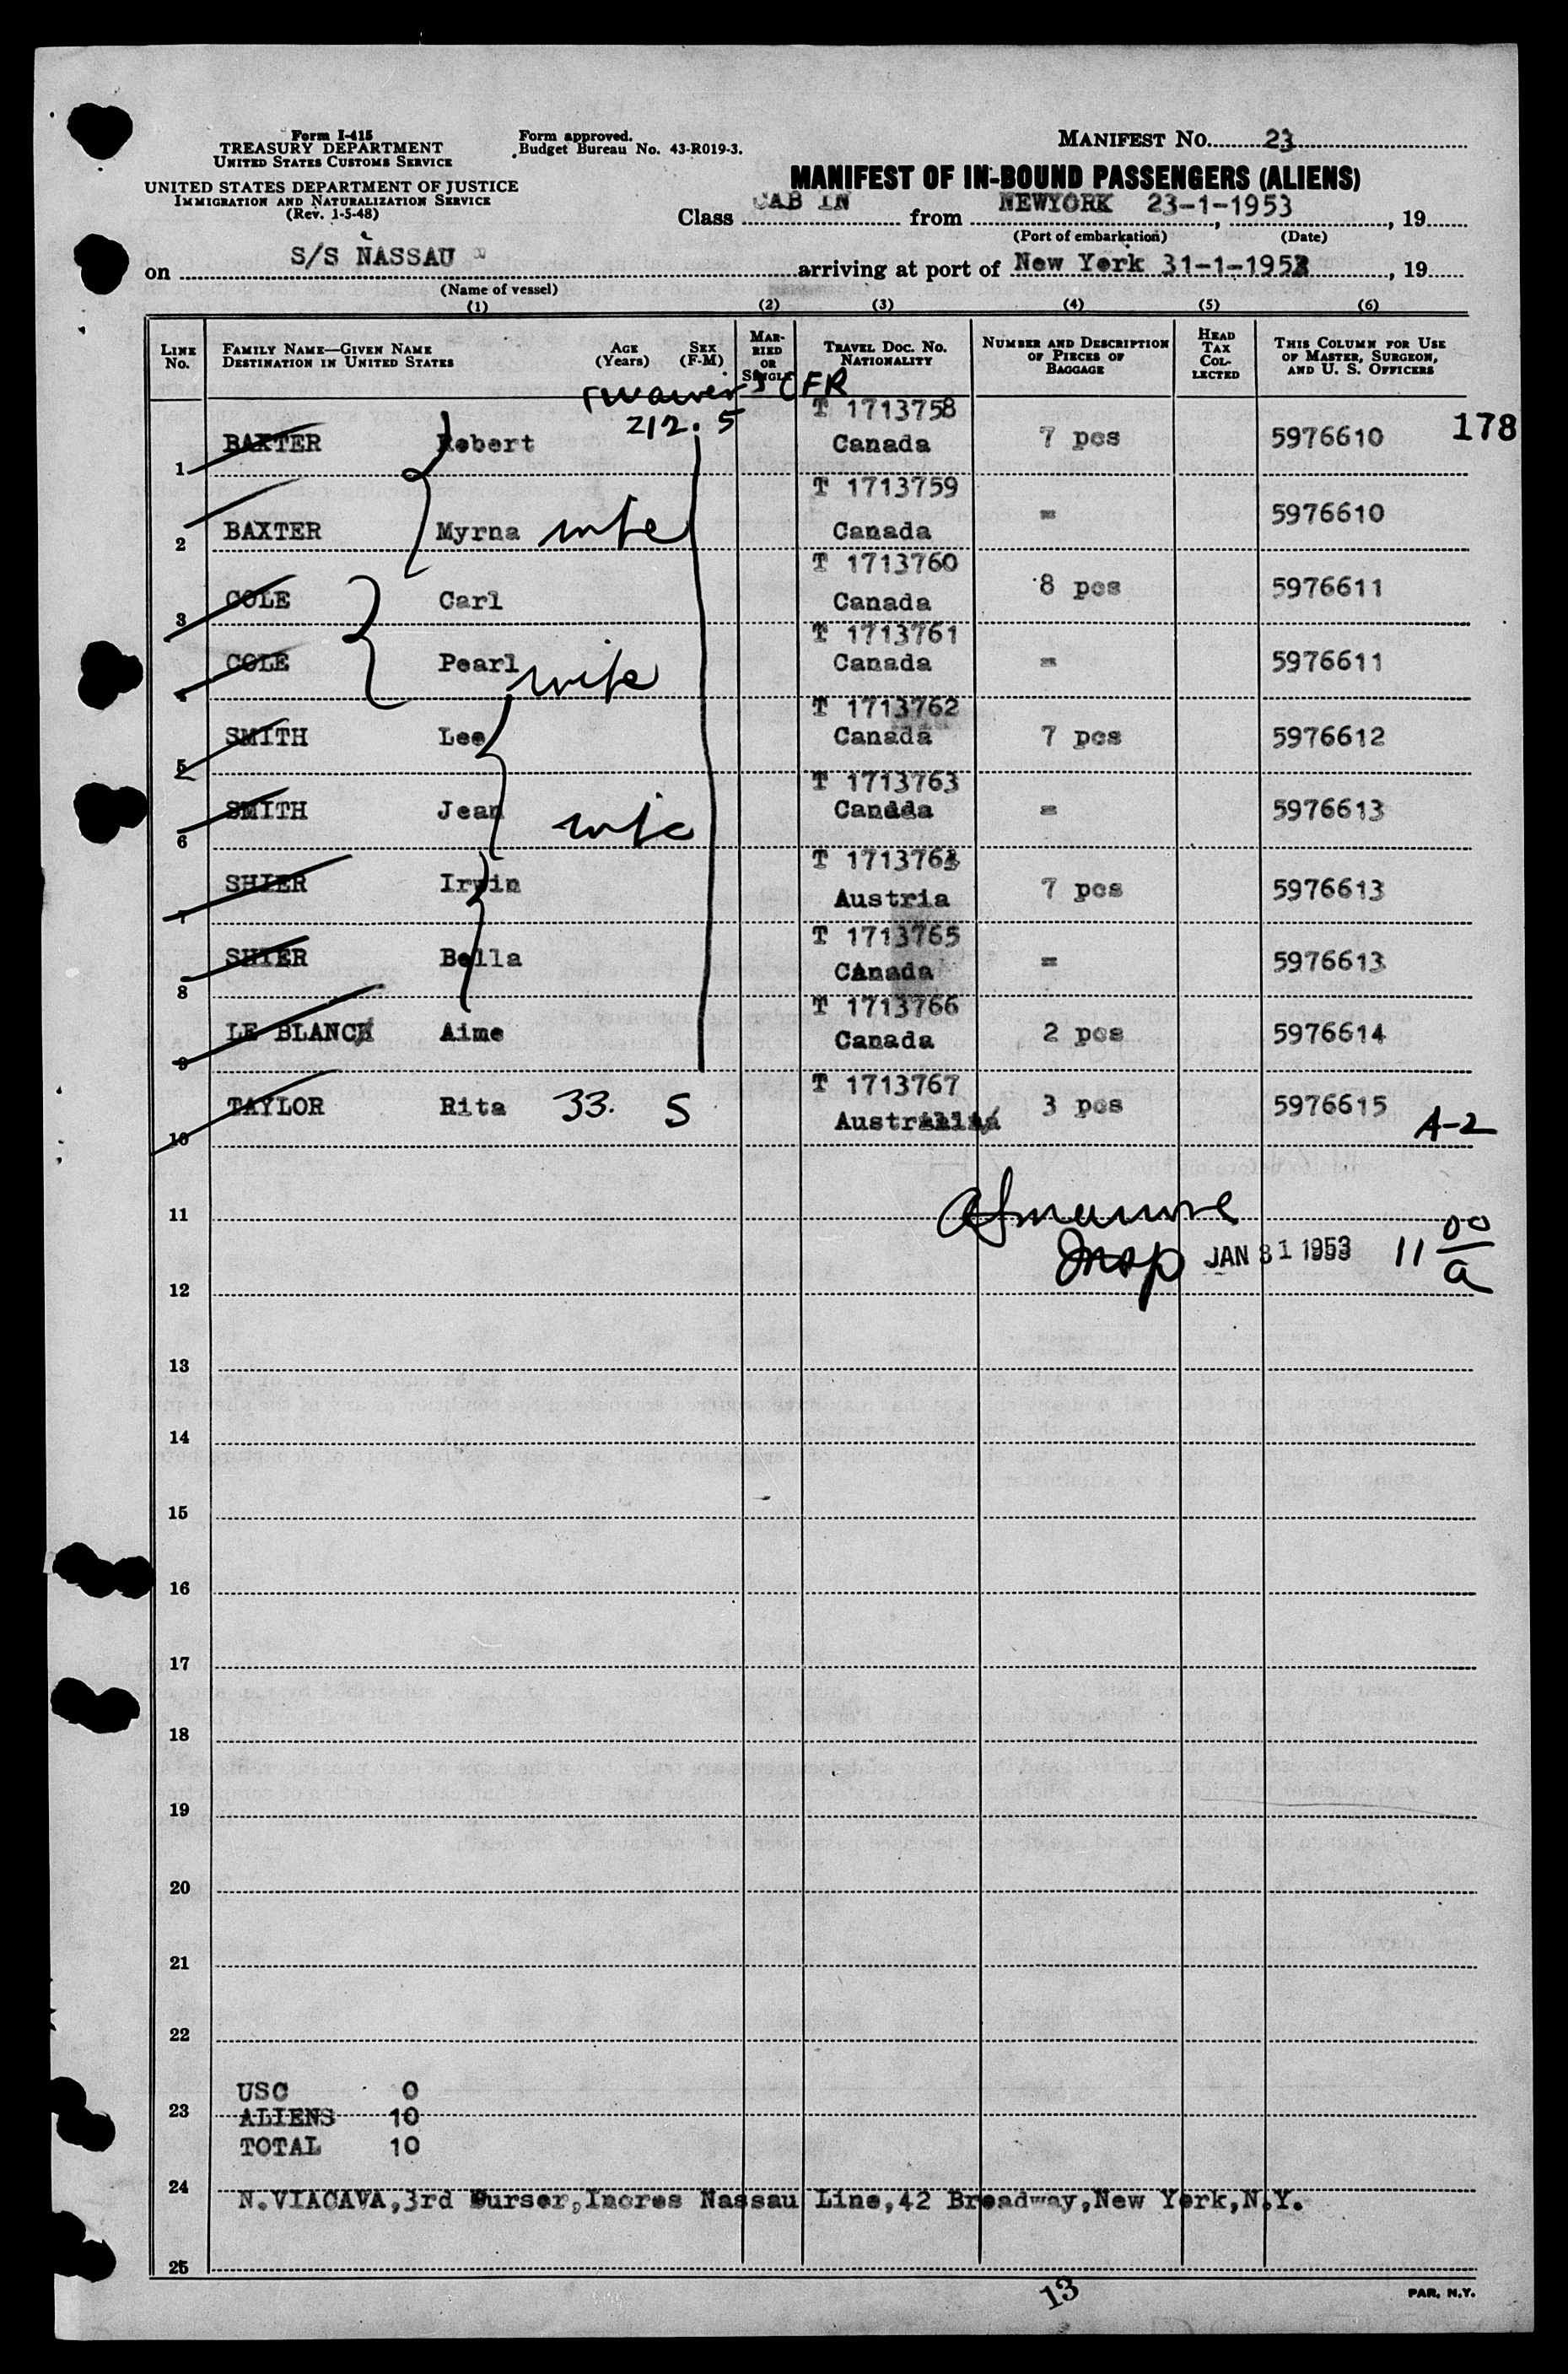 Form I-415
TREASURY DEPARTMENT
UNITED STATES CUSTOMS SERVICE
UNITED STATES DEPARTMENT OF JUSTICE
IMMIGRATION AND NATURALIZATION SERVICE
(Rev. 1-5-48)
Form approved.
Budget Bureau No. 43-R019-3.
MANIFEST No. 23
MANIFEST OF IN-BOUND PASSENGERS (ALIENS)
Class CABIN from NEWYORK 23-1-1953, 19
(Port of embarkation) (Date)
on S/S NASSAU arriving at port of New York 31-1-1953, 19
(Name of vessel)
(1) (2) (3) (4) (5) (6)
LINE No.
FAMILY NAME—GIVEN NAME
DESTINATION IN UNITED STATES
AGE (Years)
SEX (F-M)
MARRIED OR SINGLE
TRAVEL DOC. NO. NATIONALITY
NUMBER AND DESCRIPTION OF PIECES OF BAGGAGE
HEAD TAX COLLECTED
THIS COLUMN FOR USE OF MASTER, SURGEON, AND U. S. OFFICERS
waiver CFR
212.5
178
1 BAXTER Robert T 1713758 Canada 7 pcs 5976610
2 BAXTER Myrna wife T 1713759 Canada = 5976610
3 COLE Carl T 1713760 Canada 8 pcs 5976611
4 COLE Pearl wife T 1713761 Canada = 5976611
5 SMITH Lee T 1713762 Canada 7 pcs 5976612
6 SMITH Jean wife T 1713763 Canada = 5976613
7 SHIER Irwin T 1713764 Austria 7 pcs 5976613
8 SHIER Bella T 1713765 Canada = 5976613
9 LE BLANC Aime T 1713766 Canada 2 pcs 5976614
10 TAYLOR Rita 33. S T 1713767 Australia 3 pcs 5976615 A-2
11
Insp JAN 31 1953 11 00/a
12
13
14
15
16
17
18
19
20
21
22
USC 0
23 ALIENS 10
TOTAL 10
24
N.VIACAVA,3rd Purser,Incres Nassau Line,42 Broadway,New York,N.Y.
25
13
PAR, N.Y.